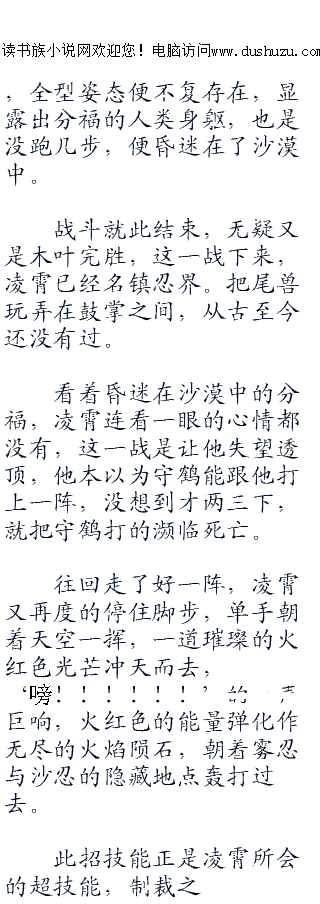 读书族小说网欢迎您！电脑访问www.dushuzu.com
，全型姿态便不复存在，显
露出分福的人类身躯，也是
没跑几步，便昏迷在了沙漠
中。
战斗就此结束，无疑又
是木叶完胜，这一战下来，
凌霄已经名镇忍界。把尾兽
玩弄在鼓掌之间，从古至今
还没有过。
看着昏迷在沙漠中的分
福，凌霄连看一眼的心情都
没有，这一战是让他失望透
顶，他本以为守鹤能跟他打
上一阵，没想到才两三下，
就把守鹤打的濒临死亡。
往回走了好一阵，凌霄
又再度的停住脚步，单手朝
着天空一挥，一道璀璨的火
红色光芒冲天而去，
‘嗙！！！！！！’的一声
巨响，火红色的能量弹化作
无尽的火焰陨石，朝着雾忍
与沙忍的隐藏地点轰打过
去。
此招技能正是凌霄所会
的超技能，制裁之